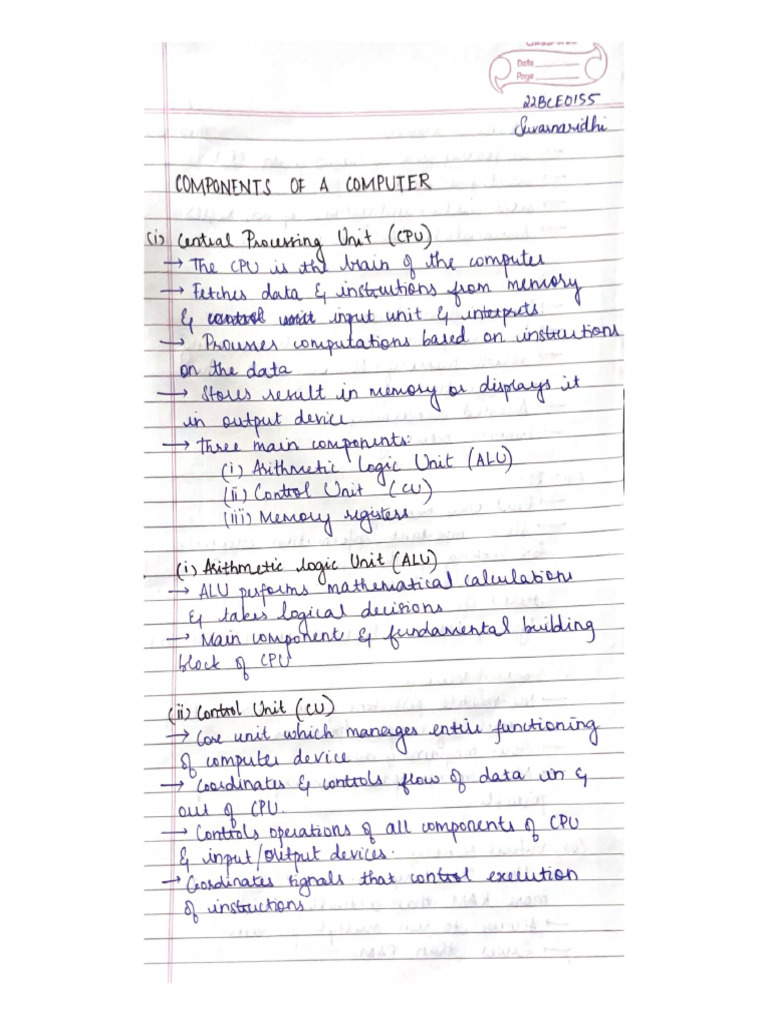 Date
Page
22BCE0155
Suvarnaridhi
COMPONENTS OF A COMPUTER
(i) Central Processing Unit (CPU)
→ The CPU is the brain of the computer
→ Fetches data & instructions from memory
& control unit input unit & interprets
→ Processes computations based on instructions
on the data
→ Stores result in memory or displays it
in output device
→ Three main components:
(i) Arithmetic Logic Unit (ALU)
(ii) Control Unit (CU)
(iii) Memory registers
(i) Arithmetic Logic Unit (ALU)
→ ALU performs mathematical calculations
& takes logical decisions
→ Main component & fundamental building
block of CPU
(ii) Control Unit (CU)
→ Core unit which manages entire functioning
of computer device
→ Coordinates & controls flow of data in &
out of CPU.
→ Controls operations of all components of CPU
& input/output devices.
→ Coordinates signals that control execution
of instructions